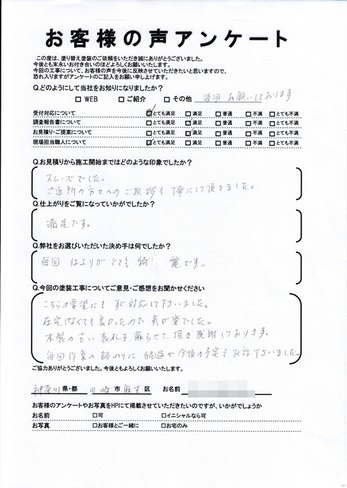 お客様の声アンケート
この度は、塗り替え塗装のご依頼をいただき誠にありがとうございました。
今後とも末永いお付き合いのほどよろしくお願いいたします。
今回の工事について、お客様の声を今後に反映させていただきたいと思いますので、
恐れ入りますがアンケートのご記入をお願い申し上げます。
Q.どのようにして当社をお知りになりましたか?
□ WEB □ ご紹介 □ その他 毎回お願いしております
受付対応について □とても満足 □満足 □普通 □不満 □とても不満
調査報告書について □とても満足 □満足 □普通 □不満 □とても不満
お見積り・ご提案について □とても満足 □満足 □普通 □不満 □とても不満
現場担当職人について □とても満足 □満足 □普通 □不満 □とても不満
Q.お見積りから施工開始まではどのような印象でしたか?
スムーズでした。
ご近所の方々へのご挨拶も丁寧にして頂きました。
Q.仕上がりをご覧になっていかがでしたか?
満足です。
Q.弊社をお選びいただいた決め手は何でしたか?
毎回 仕上りがとても綺麗です。
Q.今回の塗装工事についてご意見・ご感想をお聞かせください
こちらの要望にも対応して下さいました。
在宅しなくても良かったので気が楽でした。
木製の古い表札を蘇らせて頂き感謝しております。
毎回作業の終わりに経過や今後の予定をお話下さいました。
ご協力ありがとうございました。今後ともよろしくお願いいたします。
神奈川 県・都 川崎 市 麻生 区 お名前
お客様のアンケートやお写真をHPにて掲載させていただきたいのですが、いかがでしょうか
お名前 □可 □イニシャルなら可
お写真 □お客様とご一緒に □お宅のみ